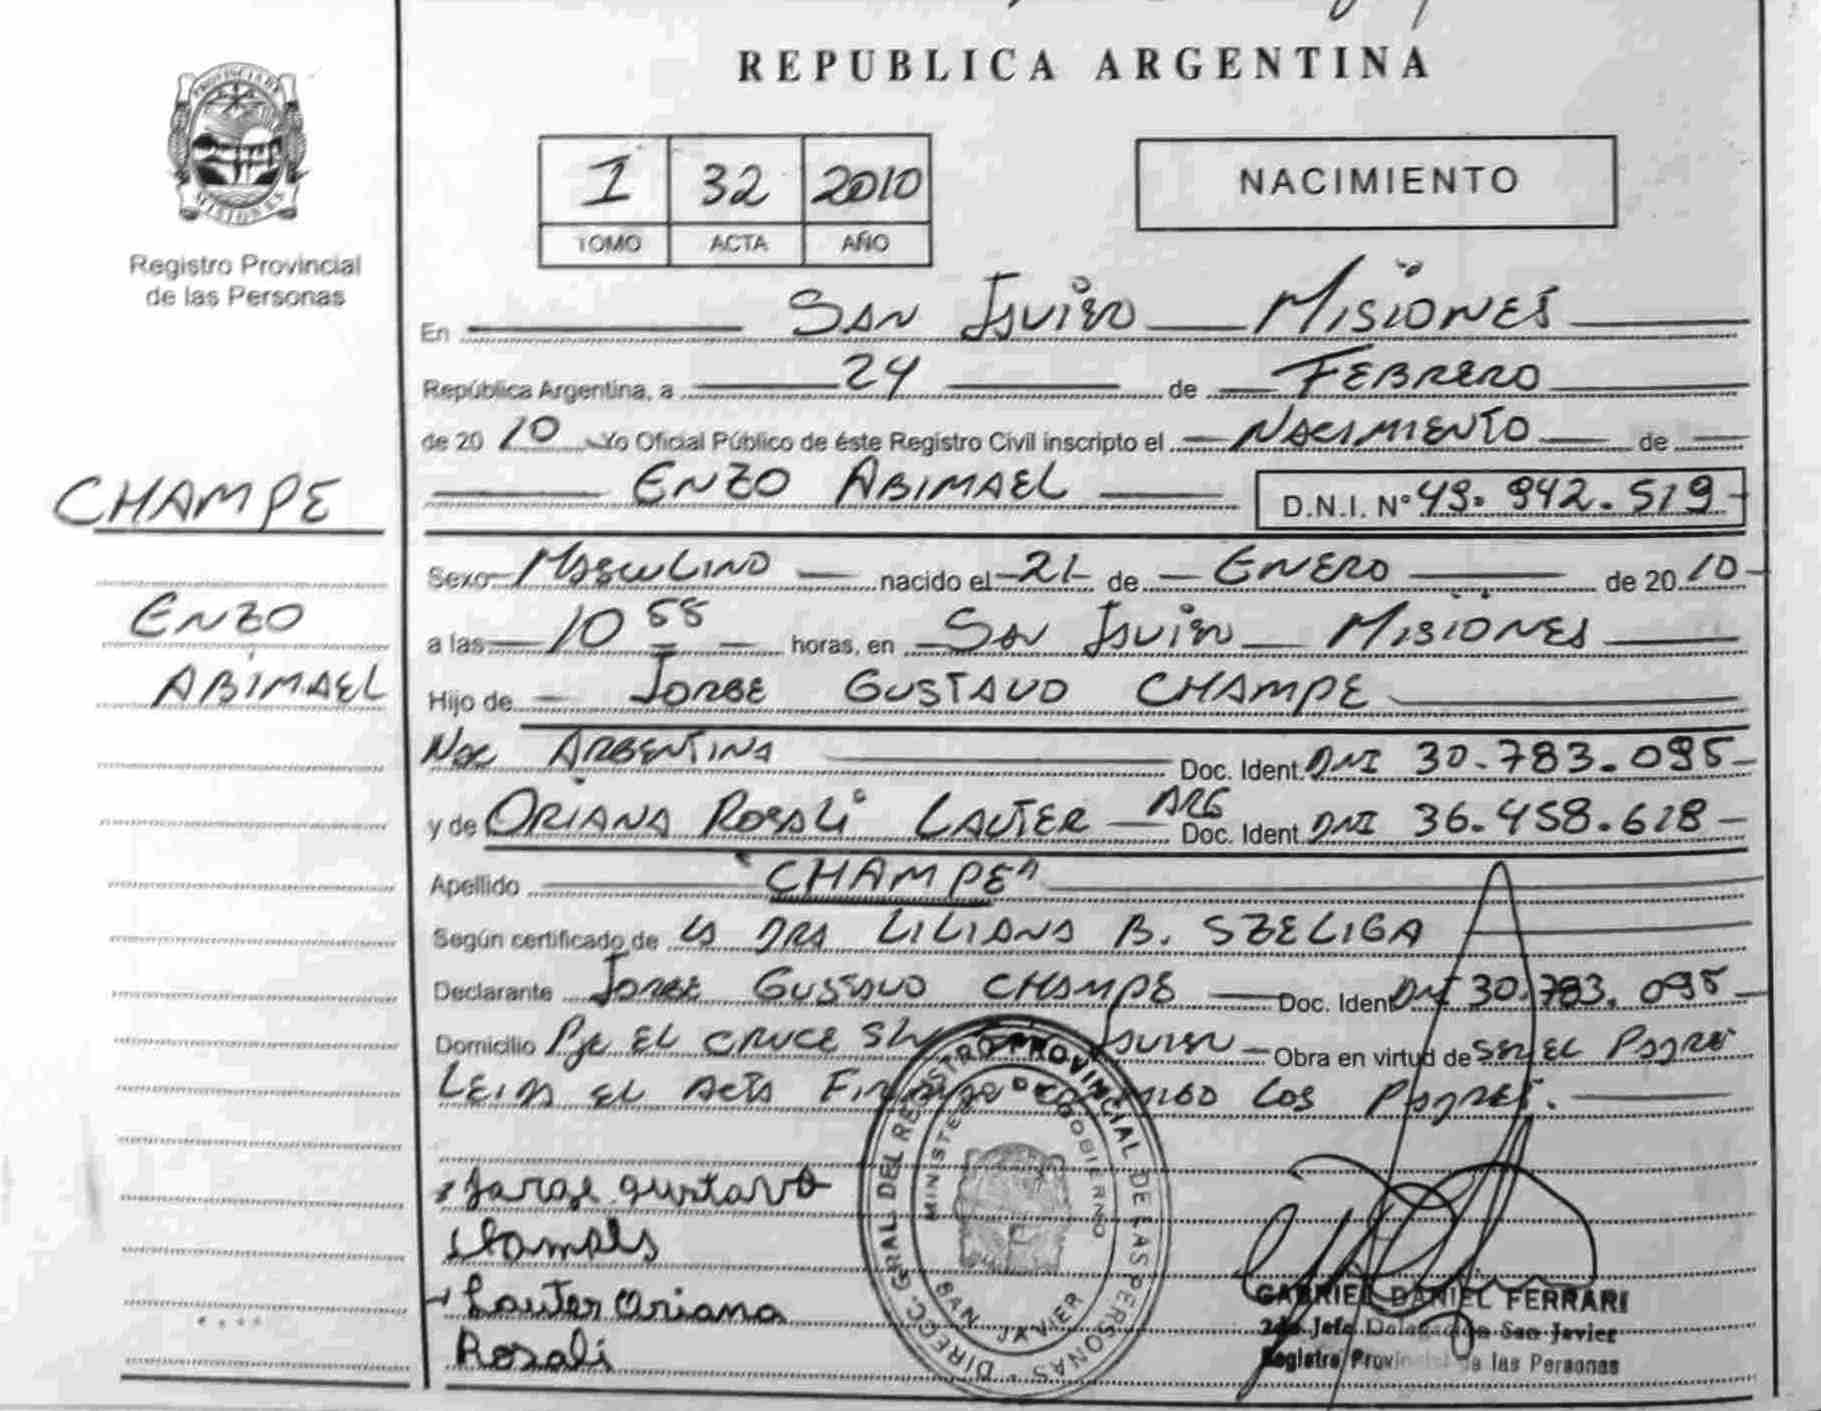 REPUBLICA ARGENTINA
PROVINCIA DE
MISIONES
Registro Provincial
de las Personas
1 32 2010
TOMO ACTA AÑO
NACIMIENTO
En SAN JAVIER MISIONES
República Argentina, a 24 de FEBRERO
de 20 10 Yo Oficial Público de éste Registro Civil inscripto el NACIMIENTO de
ENZO ABIMAEL D.N.I. Nº 49.942.519
CHAMPE
ENZO
ABIMAEL
Sexo MASCULINO nacido el 21 de ENERO de 20 10
a las 10 55 horas, en SAN JAVIER MISIONES
Hijo de JORGE GUSTAVO CHAMPE
NAC ARGENTINA Doc. Ident. DNI 30.783.095
y de ORIANA ROSALI LAUTER ARG Doc. Ident. DNI 36.458.618
Apellido "CHAMPE"
Según certificado de LA DRA LILIANA B. SZELIGA
Declarante JORGE GUSTAVO CHAMPE Doc. Ident DNI 30.783.095
Domicilio Pje EL CRUCE S/N JAVIER Obra en virtud de SER EL PADRE
LEIDA EL ACTA LOS PADRES.
Jorge gustavo
Lauter Oriana
Rosali
DIRECC. GRAL. DEL REGISTRO PROVINCIAL DE LAS PERSONAS
MINISTERIO DE GOBIERNO
SAN JAVIER
GABRIEL DANIEL FERRARI
2do Jefe Delegación San Javier
Registro Provincial de las Personas